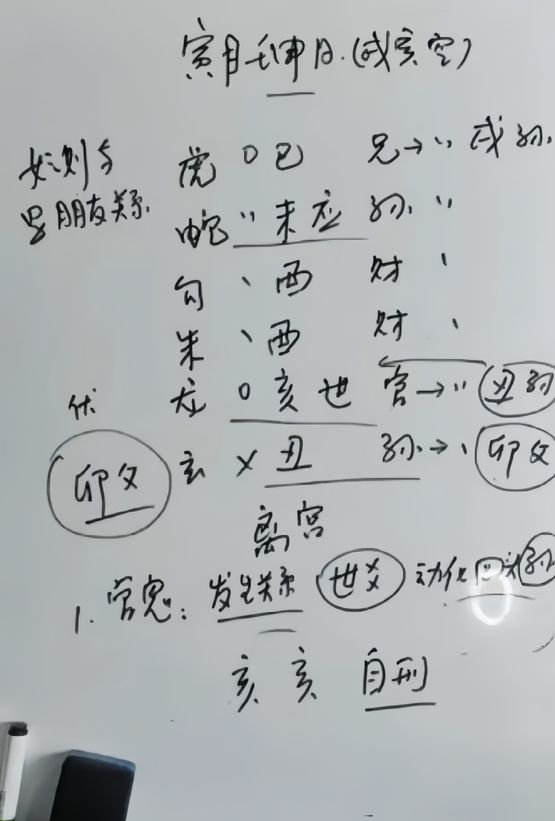 寅月壬申日.(戌亥空)
女:测与
男朋友关系.
虎 〇巳 兄→〃戌孙.
蛇 〃未应 孙.〃
勾 、酉 财 、
朱 、酉 财 、
龙 〇亥世 官→〃丑孙
伏
卯父
玄 ×丑 孙.→、卯父
离宫
1. 官鬼: 发生关系 世爻 动化回头孙
亥 亥 自刑